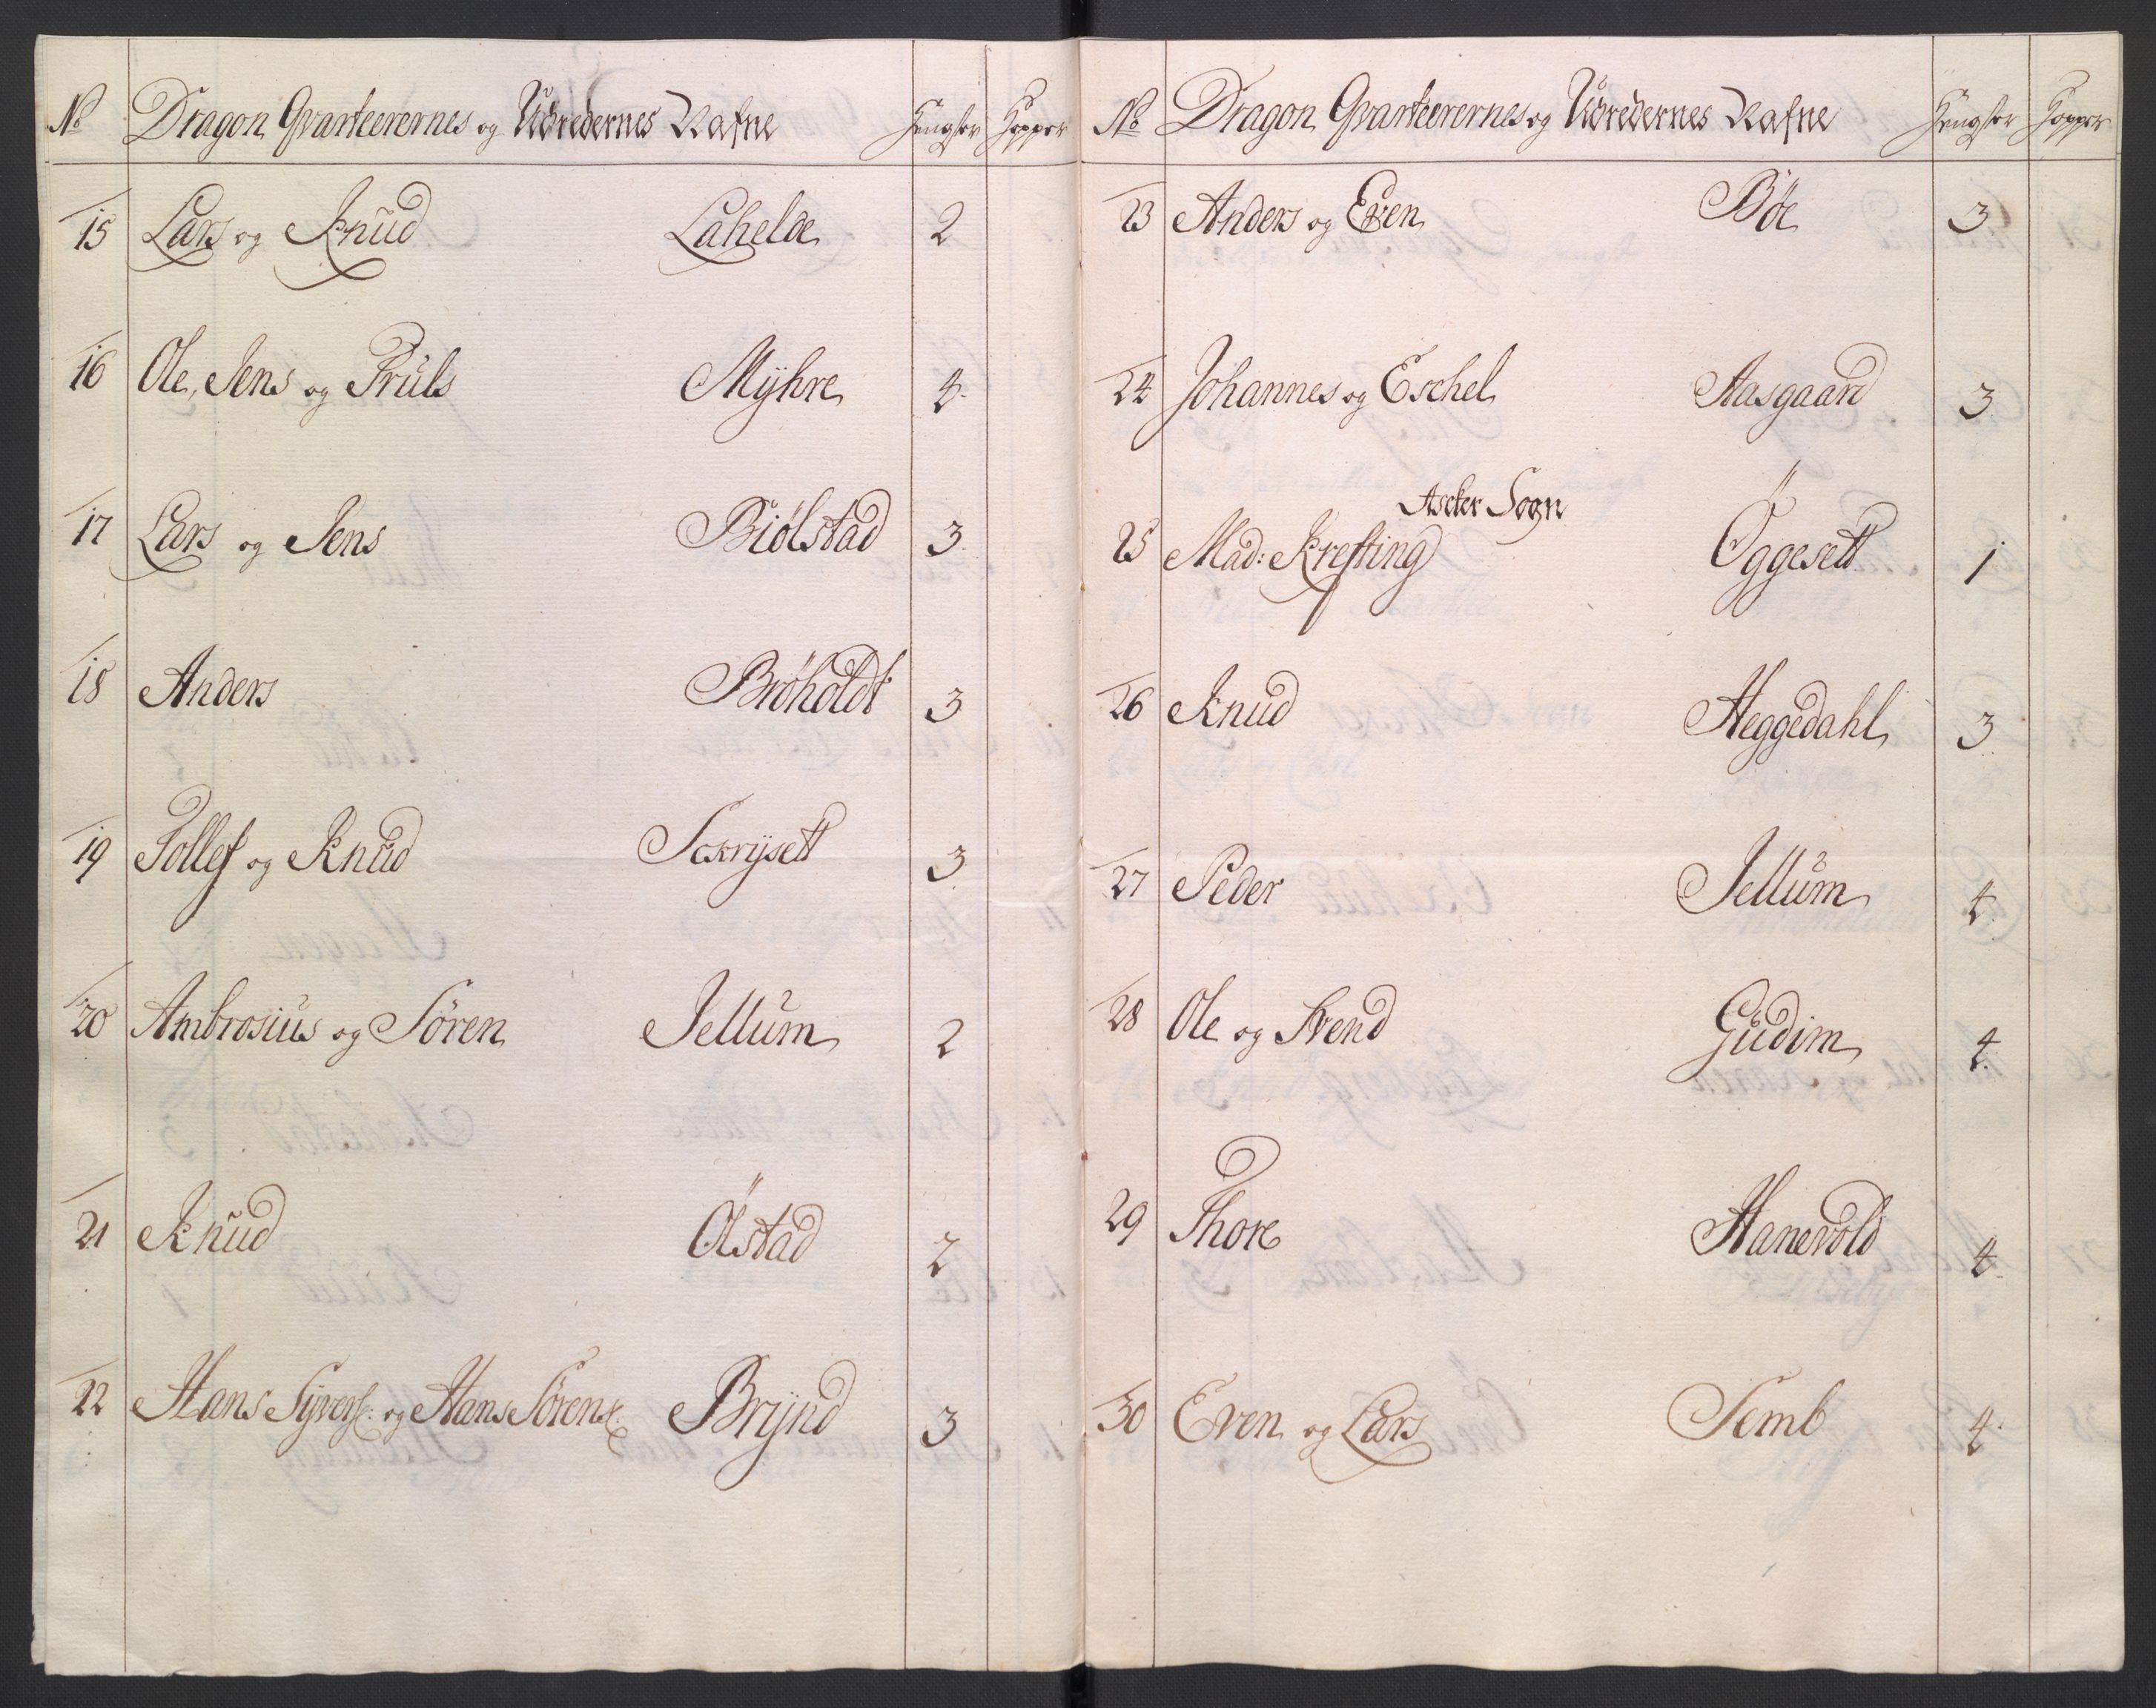 No Dragon Qvarteerernes og Udredernes Nafne Hengster Hopper
15 Lars og Knud Lahelde 2
16 Ole, Jens og Truls Mÿhre 4.
17 Lars og Jens Biölstad 3.
18 Anders Bröholdt 3
19 Tollef og Knud Sckrÿsett 3
20 Ambrosius og Sören Jellum 2
21 Knud Ölstad 2
22 Hans Sÿvers: og Hans Sörens: Brÿnd 3
No Dragon Qvarteerernes og Udredernes Nafne Hengster Hopper
23 Anders og Even Böe 3
24 Johannes og Eschel Aasgaard 3
Ascker Sogn
25 Mad: Krefting Öggesett 1
26 Knud Heggedahl 3
27 Peder Jellum 4.
28 Ole og Svend Gudim 4.
29 Thore Hanevold 4.
30 Even og Lars Semb 4.